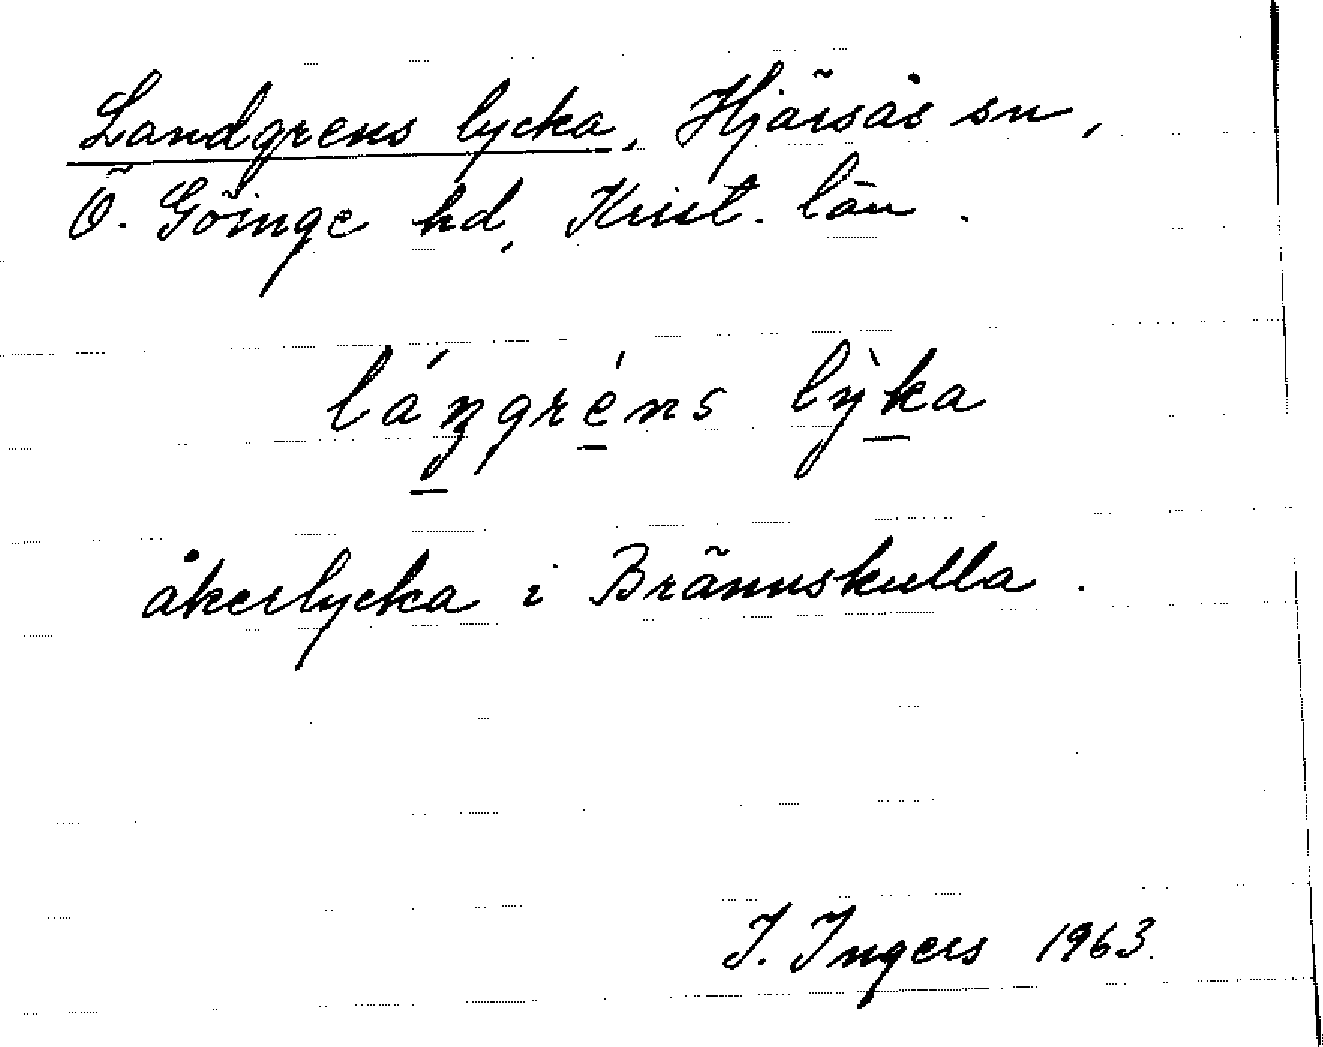 Landgrens lycka, Hjärsås sn,
Ö. Göinge hd, Krist. län.
lángréns lỳka
åkerlycka i Brännskulla.
I. Ingers 1963.